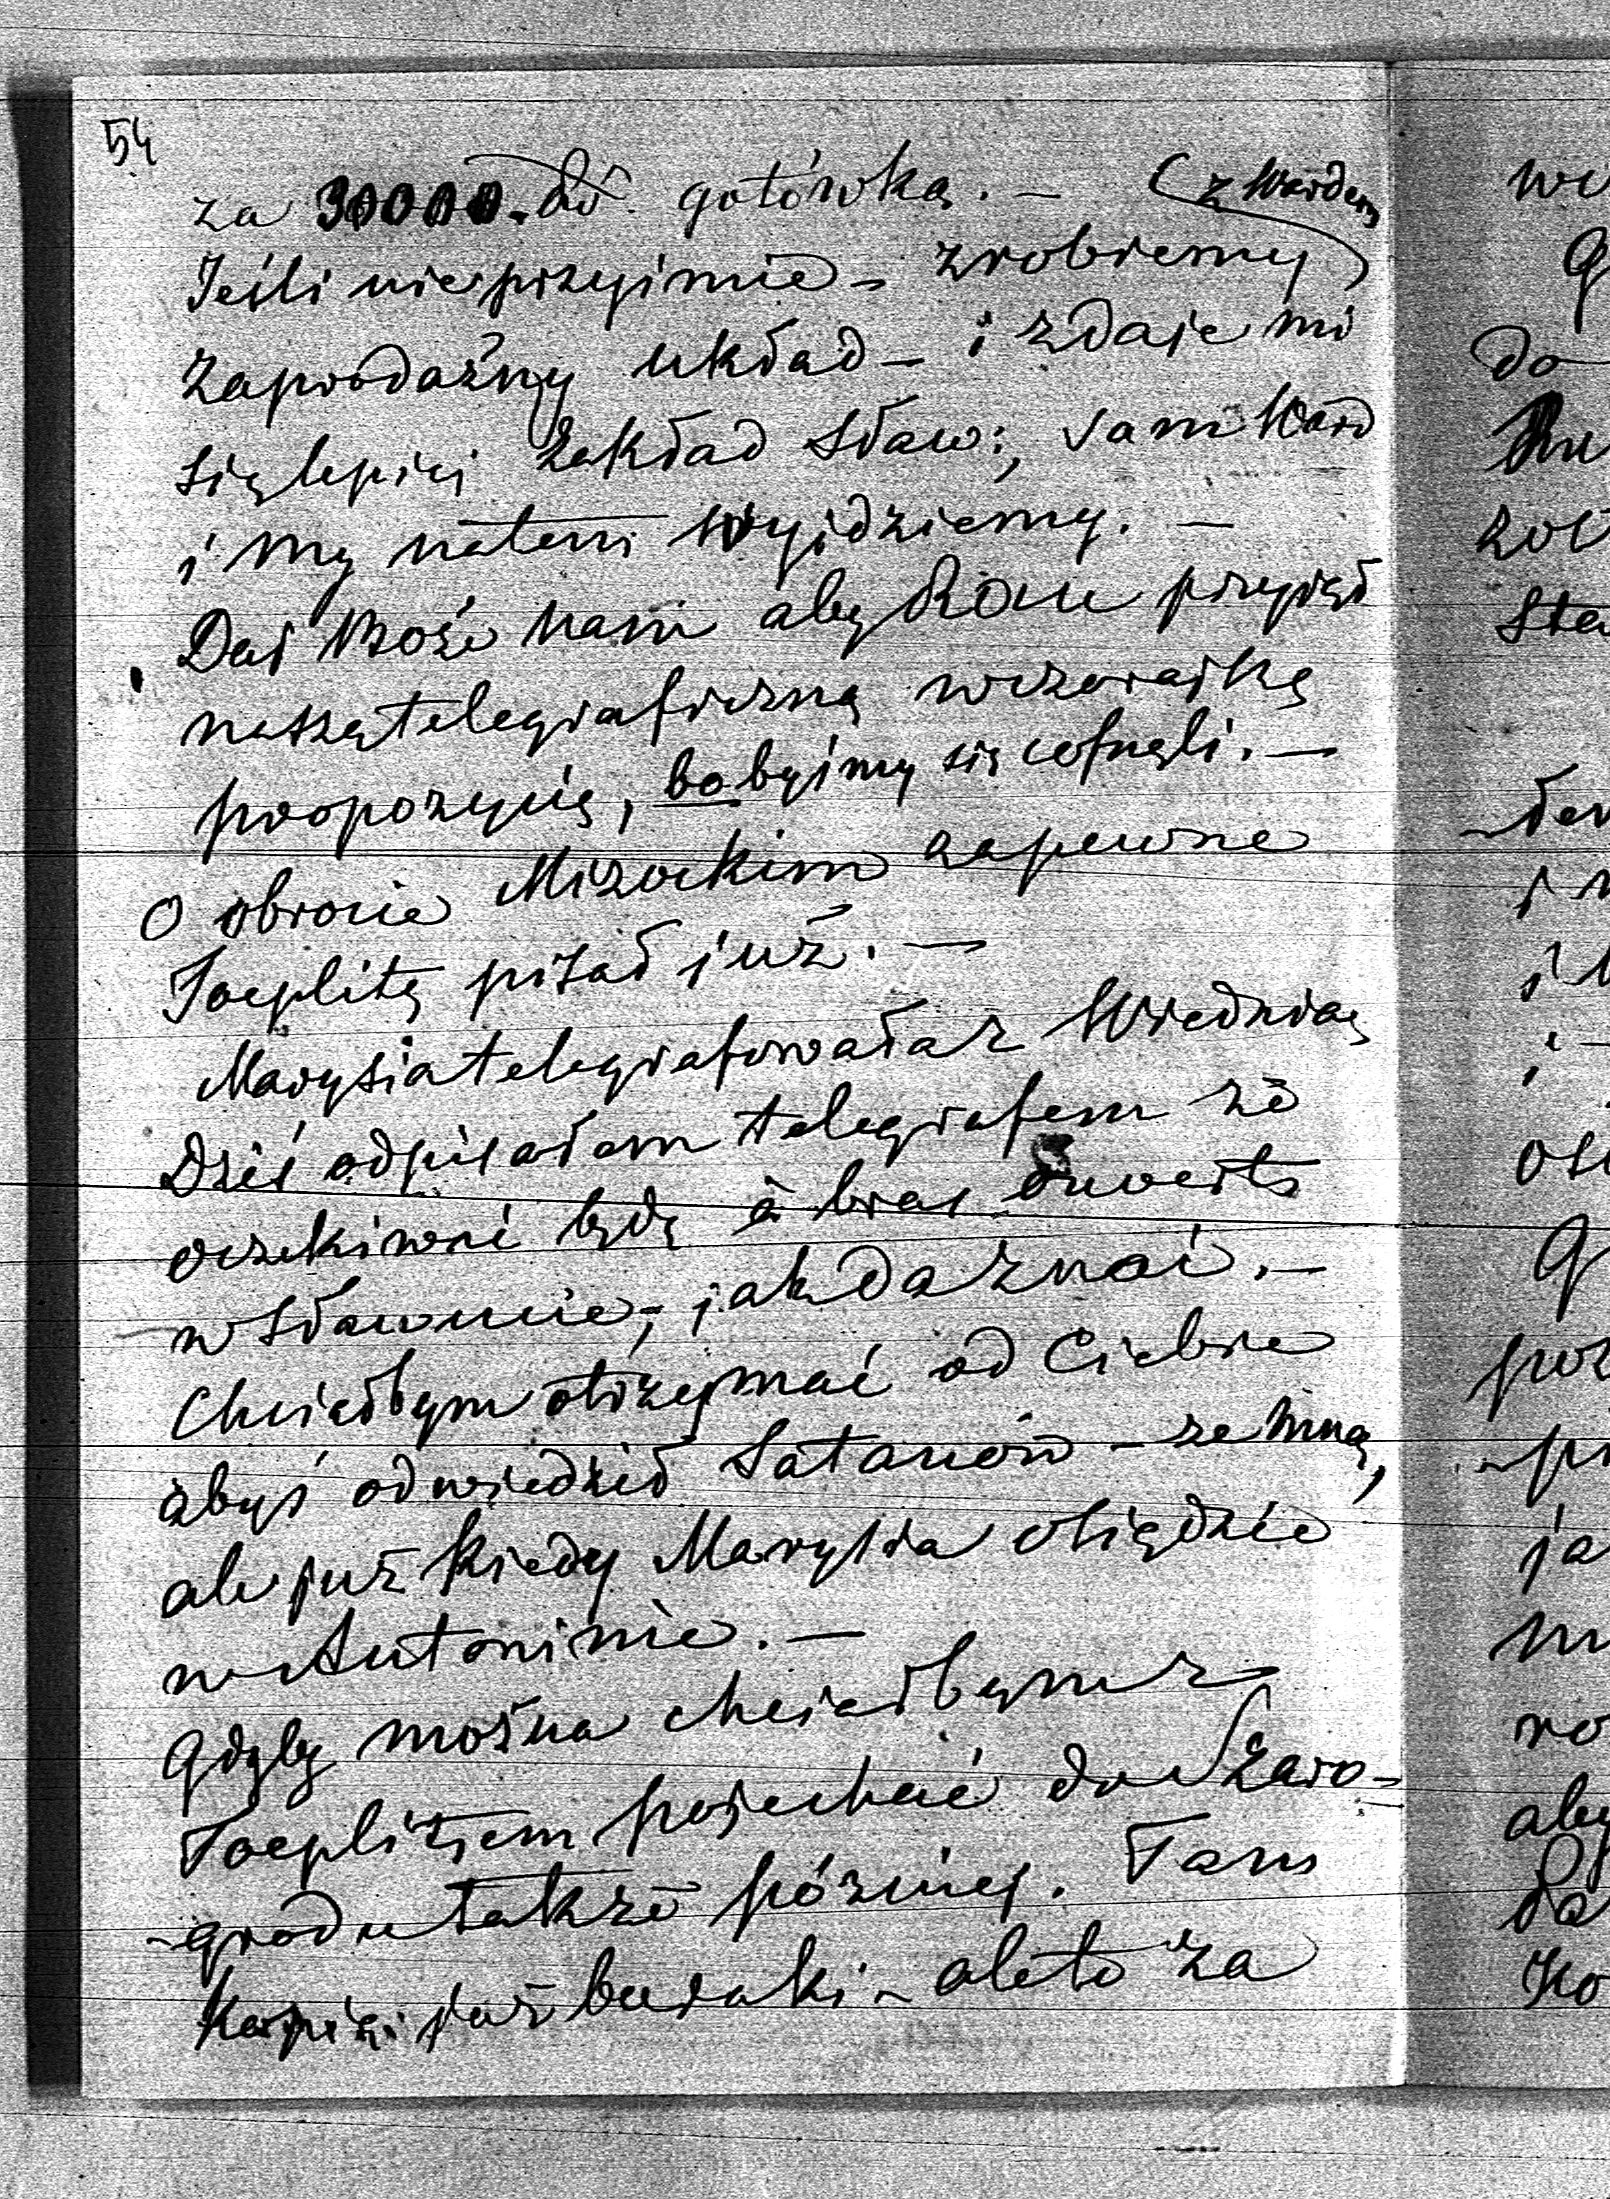 54
za 30000 do gotówką. — (z Wardem)
Jeśli nieprzyjmie – zrobiemy
zaprodażny układ – i zdaje mi
się lepiej Zakład Sław:, sam Ward
i my natem wyjdziemy. —
Daj Boże nam aby Rou przyjął
naszą telegraficzną wczorajszą
propozycię, bobyśmy się cofnęli. —
O obrocie Mizockim zapewne
Toeplitz pisał już. —
Marysia telegrafowała z Wiednia,
Dziś odpisałem telegrafem że
oczekiwać będę à bras ouverts
w Sławucie, jak da znać. —
Chciałbym otrzymać od Ciebie
abyś odwiedził Satanów – ze mną,
ale już kiedy Marysia osiędzie
w Antoninie. —
Gdyby można chciałbym z
Toeplitzem pojechać do Szaro-
-grodu także później. Tam
kopią już buraki – ale to za
we
do
zot
i
ja
ro
aby
da
Ko